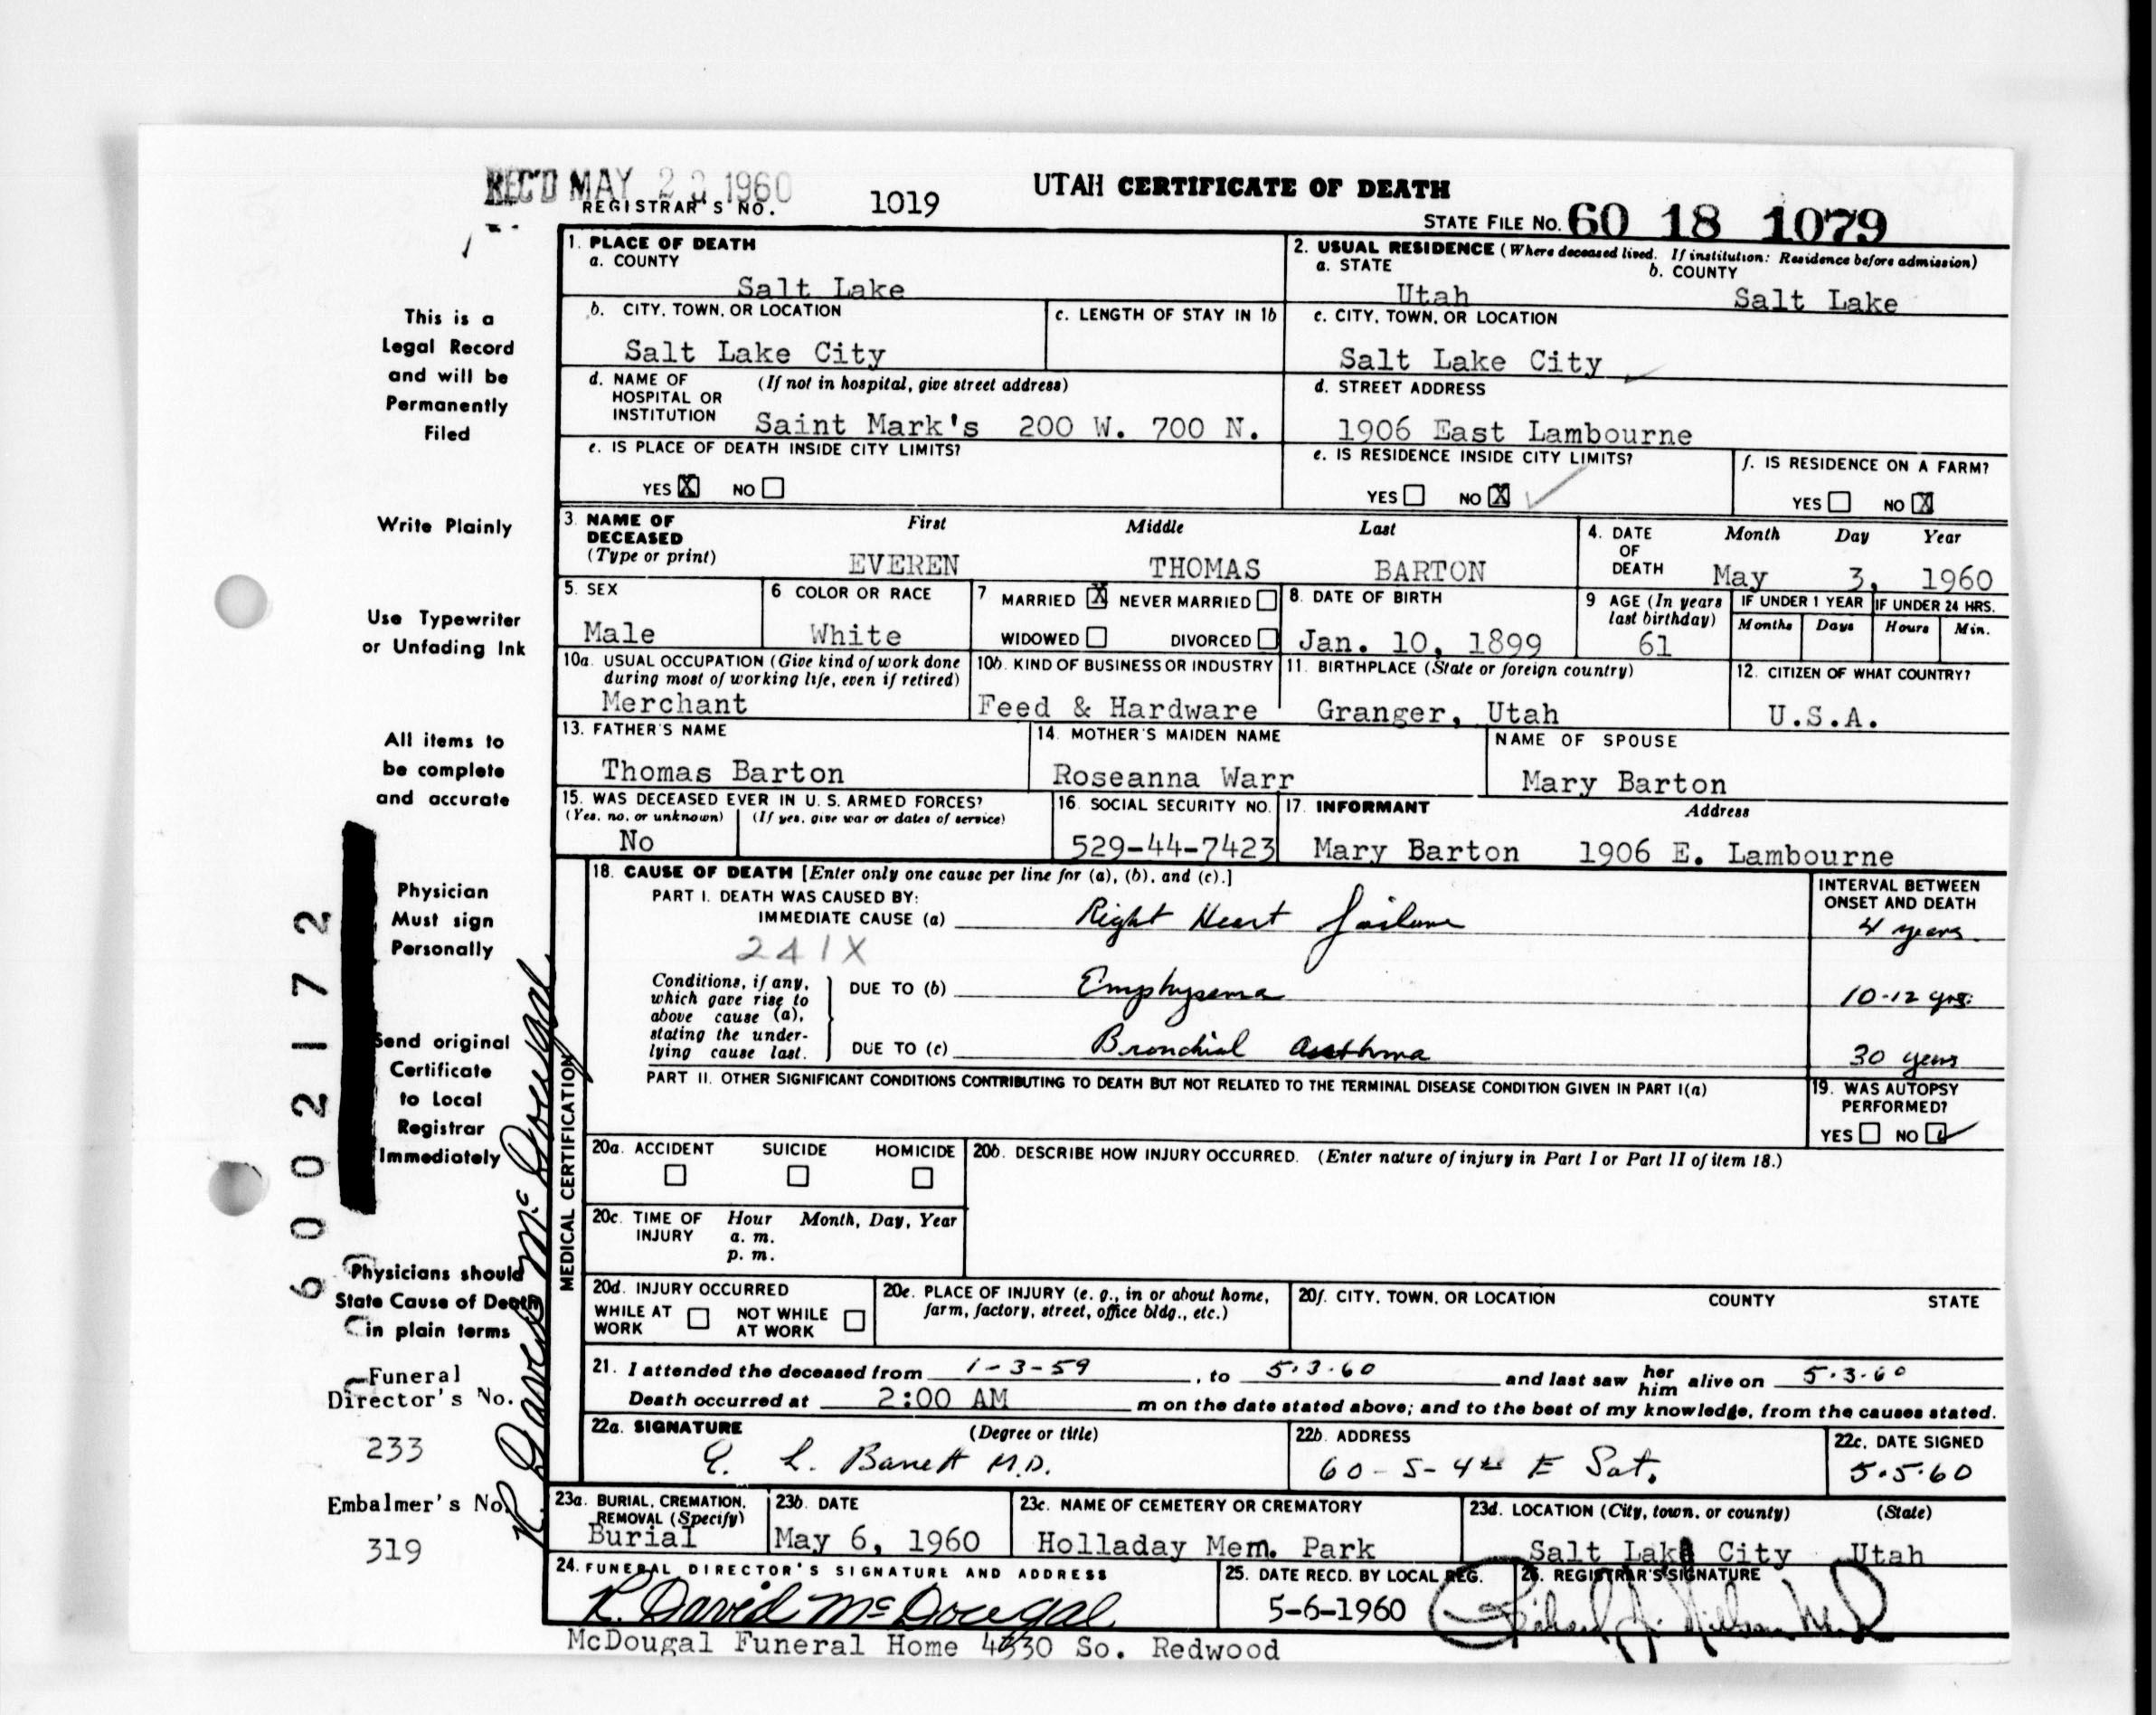 REC'D MAY 2 1960
REGISTRAR'S NO. 1019
UTAH CERTIFICATE OF DEATH
STATE FILE NO. 60 18 1079
1. PLACE OF DEATH
a. COUNTY
Salt Lake
2. USUAL RESIDENCE (Where deceased lived. If institution: Residence before admission)
a. STATE b. COUNTY
Utah Salt Lake
b. CITY, TOWN, OR LOCATION
Salt Lake City
c. LENGTH OF STAY IN 1b
c. CITY, TOWN, OR LOCATION
Salt Lake City
d. NAME OF HOSPITAL OR INSTITUTION (If not in hospital, give street address)
Saint Mark's 200 W. 700 N.
d. STREET ADDRESS
1906 East Lambourne
e. IS PLACE OF DEATH INSIDE CITY LIMITS?
YES X NO
e. IS RESIDENCE INSIDE CITY LIMITS?
YES NO X
f. IS RESIDENCE ON A FARM?
YES NO X
3. NAME OF DECEASED (Type or print)
First Middle Last
EVEREN THOMAS BARTON
4. DATE OF DEATH Month Day Year
May 3, 1960
5. SEX
Male
6 COLOR OR RACE
White
7 MARRIED X NEVER MARRIED
WIDOWED DIVORCED
8. DATE OF BIRTH
Jan. 10, 1899
9 AGE (In years last birthday)
61
IF UNDER 1 YEAR
Months Days
IF UNDER 24 HRS.
Hours Min.
10a. USUAL OCCUPATION (Give kind of work done during most of working life, even if retired)
Merchant
10b. KIND OF BUSINESS OR INDUSTRY
Feed & Hardware
11. BIRTHPLACE (State or foreign country)
Granger, Utah
12. CITIZEN OF WHAT COUNTRY?
U.S.A.
13. FATHER'S NAME
Thomas Barton
14. MOTHER'S MAIDEN NAME
Roseanna Warr
NAME OF SPOUSE
Mary Barton
15. WAS DECEASED EVER IN U. S. ARMED FORCES?
(Yes, no, or unknown) (If yes, give war or dates of service)
No
16. SOCIAL SECURITY NO.
529-44-7423
17. INFORMANT Address
Mary Barton 1906 E. Lambourne
MEDICAL CERTIFICATION
18. CAUSE OF DEATH [Enter only one cause per line for (a), (b), and (c).]
PART I. DEATH WAS CAUSED BY:
IMMEDIATE CAUSE (a) Right Heart failure
241X
INTERVAL BETWEEN ONSET AND DEATH
4 years
Conditions, if any, which gave rise to above cause (a), stating the underlying cause last.
DUE TO (b) Emphysema
10-12 yrs.
DUE TO (c) Bronchial Asthma
30 years
PART II. OTHER SIGNIFICANT CONDITIONS CONTRIBUTING TO DEATH BUT NOT RELATED TO THE TERMINAL DISEASE CONDITION GIVEN IN PART I(a)
19. WAS AUTOPSY PERFORMED?
YES NO ✓
20a. ACCIDENT SUICIDE HOMICIDE
20b. DESCRIBE HOW INJURY OCCURRED. (Enter nature of injury in Part I or Part II of item 18.)
20c. TIME OF INJURY Hour Month, Day, Year
a. m.
p. m.
20d. INJURY OCCURRED
WHILE AT WORK NOT WHILE AT WORK
20e. PLACE OF INJURY (e. g., in or about home, farm, factory, street, office bldg., etc.)
20f. CITY, TOWN, OR LOCATION COUNTY STATE
21. I attended the deceased from 1-3-59, to 5.3.60 and last saw her him alive on 5.3.60
Death occurred at 2:00 AM m on the date stated above; and to the best of my knowledge, from the causes stated.
22a. SIGNATURE (Degree or title)
M.D.
22b. ADDRESS
60-S-4th E
22c. DATE SIGNED
5.5.60
23a. BURIAL, CREMATION, REMOVAL (Specify)
Burial
23b. DATE
May 6, 1960
23c. NAME OF CEMETERY OR CREMATORY
Holladay Mem. Park
23d. LOCATION (City, town, or county) (State)
Salt Lake City Utah
24. FUNERAL DIRECTOR'S SIGNATURE AND ADDRESS
R. David McDougal
25. DATE RECD. BY LOCAL REG.
5-6-1960
26. REGISTRAR'S SIGNATURE
McDougal Funeral Home 4330 So. Redwood
This is a
Legal Record
and will be
Permanently
Filed
Write Plainly
Use Typewriter
or Unfading Ink
All items to
be complete
and accurate
Physician
Must sign
Personally
Send original
Certificate
to Local
Registrar
Immediately
Physicians should
State Cause of Death
in plain terms
Funeral
Director's No.
233
Embalmer's No.
319
6002172
R. David McDougal